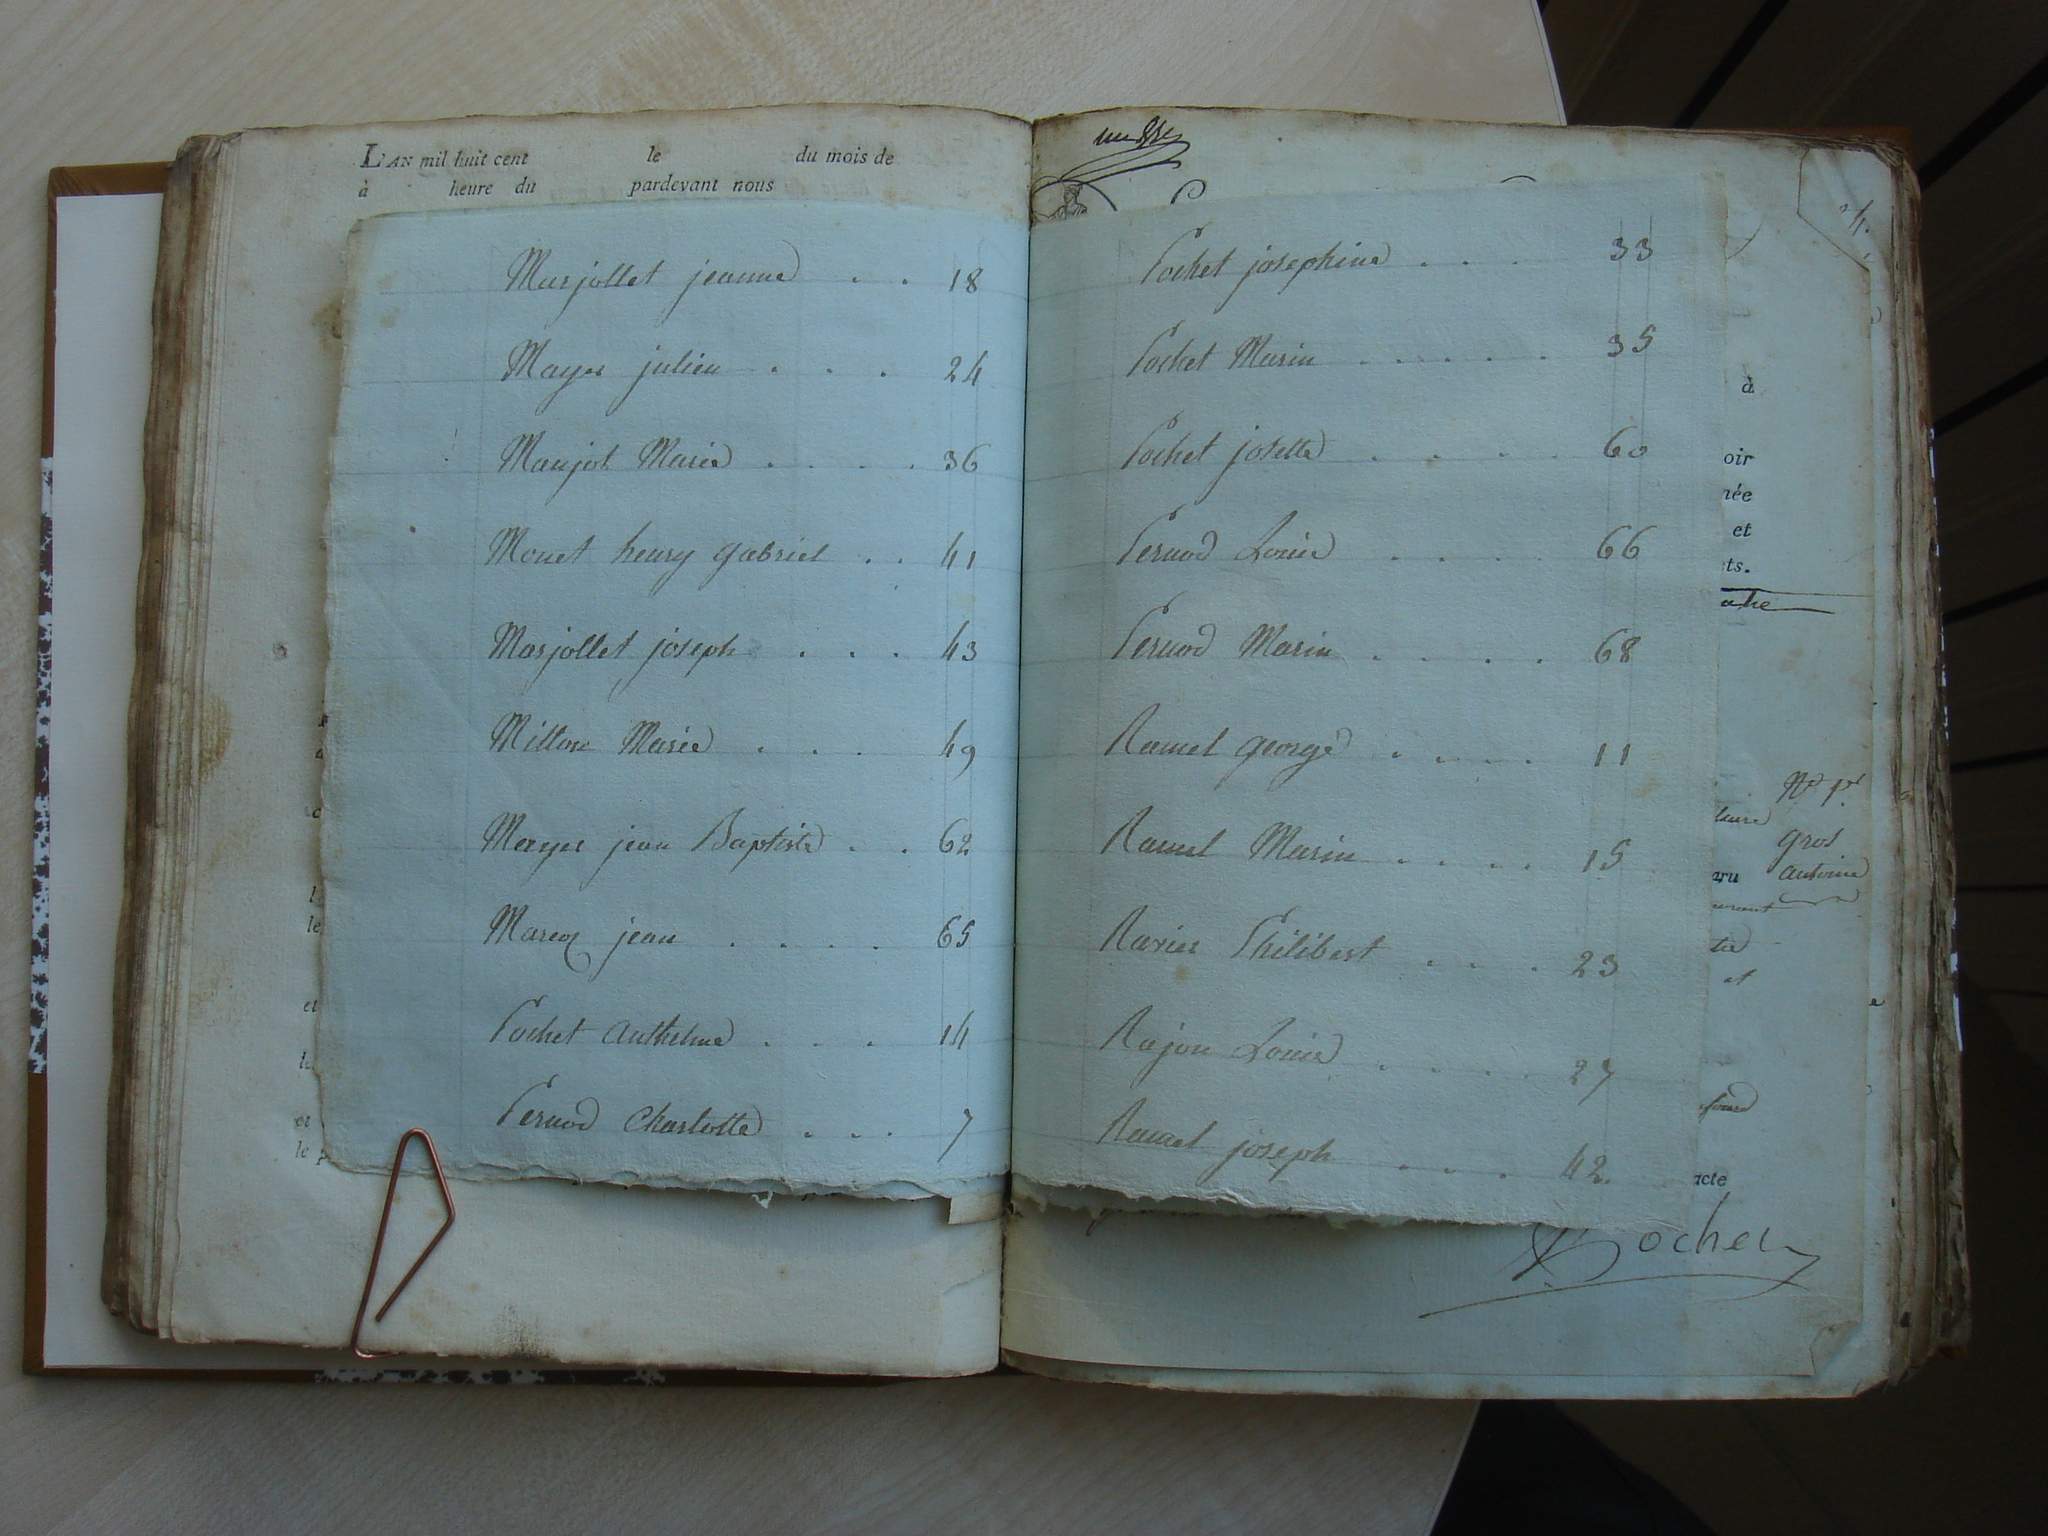 L'AN mil huit cent le du mois de
à heure du pardevant nous
Marjollet jeanne . . 18
Mayer julien . . . 24
Maujot Marie . . . . 36
Monet henry gabriel . . 41
Marjollet joseph . . . 43
Millon Marie . . . 49
Mayer jean Baptiste . . 62
Marcoz jean . . . . 65
Pochet anthelme . . . 14
Pernod Charlotte . . . 7
Pochet josephine . . . 33
Pochet Marin . . . . . 35
Pochet josette . . . . 60
Pernod Louise . . . . 66
Pernod Marin . . . . 68
Ramel george . . . . 11
Ramel Marin . . . . 15
Ravier Philibert . . . 23
Rajon Louise . . . . 27
Ramel joseph . . . . 42.
à
oir
née
et
ets.
gros
aru antoine
acte